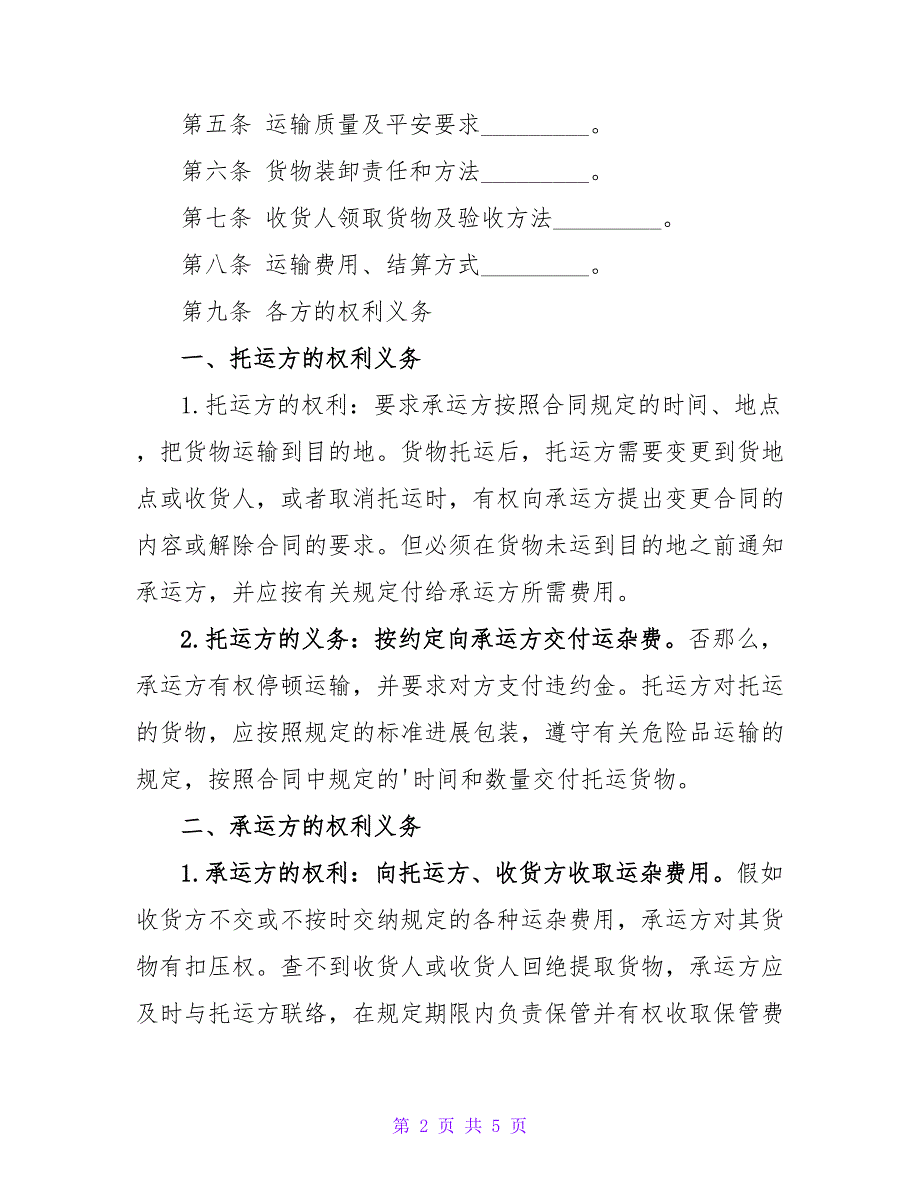 第五条 运输质量及平安要求_________。
第六条 货物装卸责任和方法_________。
第七条 收货人领取货物及验收方法_________。
第八条 运输费用、结算方式_________。
第九条 各方的权利义务
一、托运方的权利义务
1.托运方的权利：要求承运方按照合同规定的时间、地点
，把货物运输到目的地。货物托运后，托运方需要变更到货地
点或收货人，或者取消托运时，有权向承运方提出变更合同的
内容或解除合同的要求。但必须在货物未运到目的地之前通知
承运方，并应按有关规定付给承运方所需费用。
2.托运方的义务：按约定向承运方交付运杂费。否那么，
承运方有权停顿运输，并要求对方支付违约金。托运方对托运
的货物，应按照规定的标准进展包装，遵守有关危险品运输的
规定，按照合同中规定的'时间和数量交付托运货物。
二、承运方的权利义务
1.承运方的权利：向托运方、收货方收取运杂费用。假如
收货方不交或不按时交纳规定的各种运杂费用，承运方对其货
物有扣压权。查不到收货人或收货人回绝提取货物，承运方应
及时与托运方联络，在规定期限内负责保管并有权收取保管费
第 2 页 共 5 页